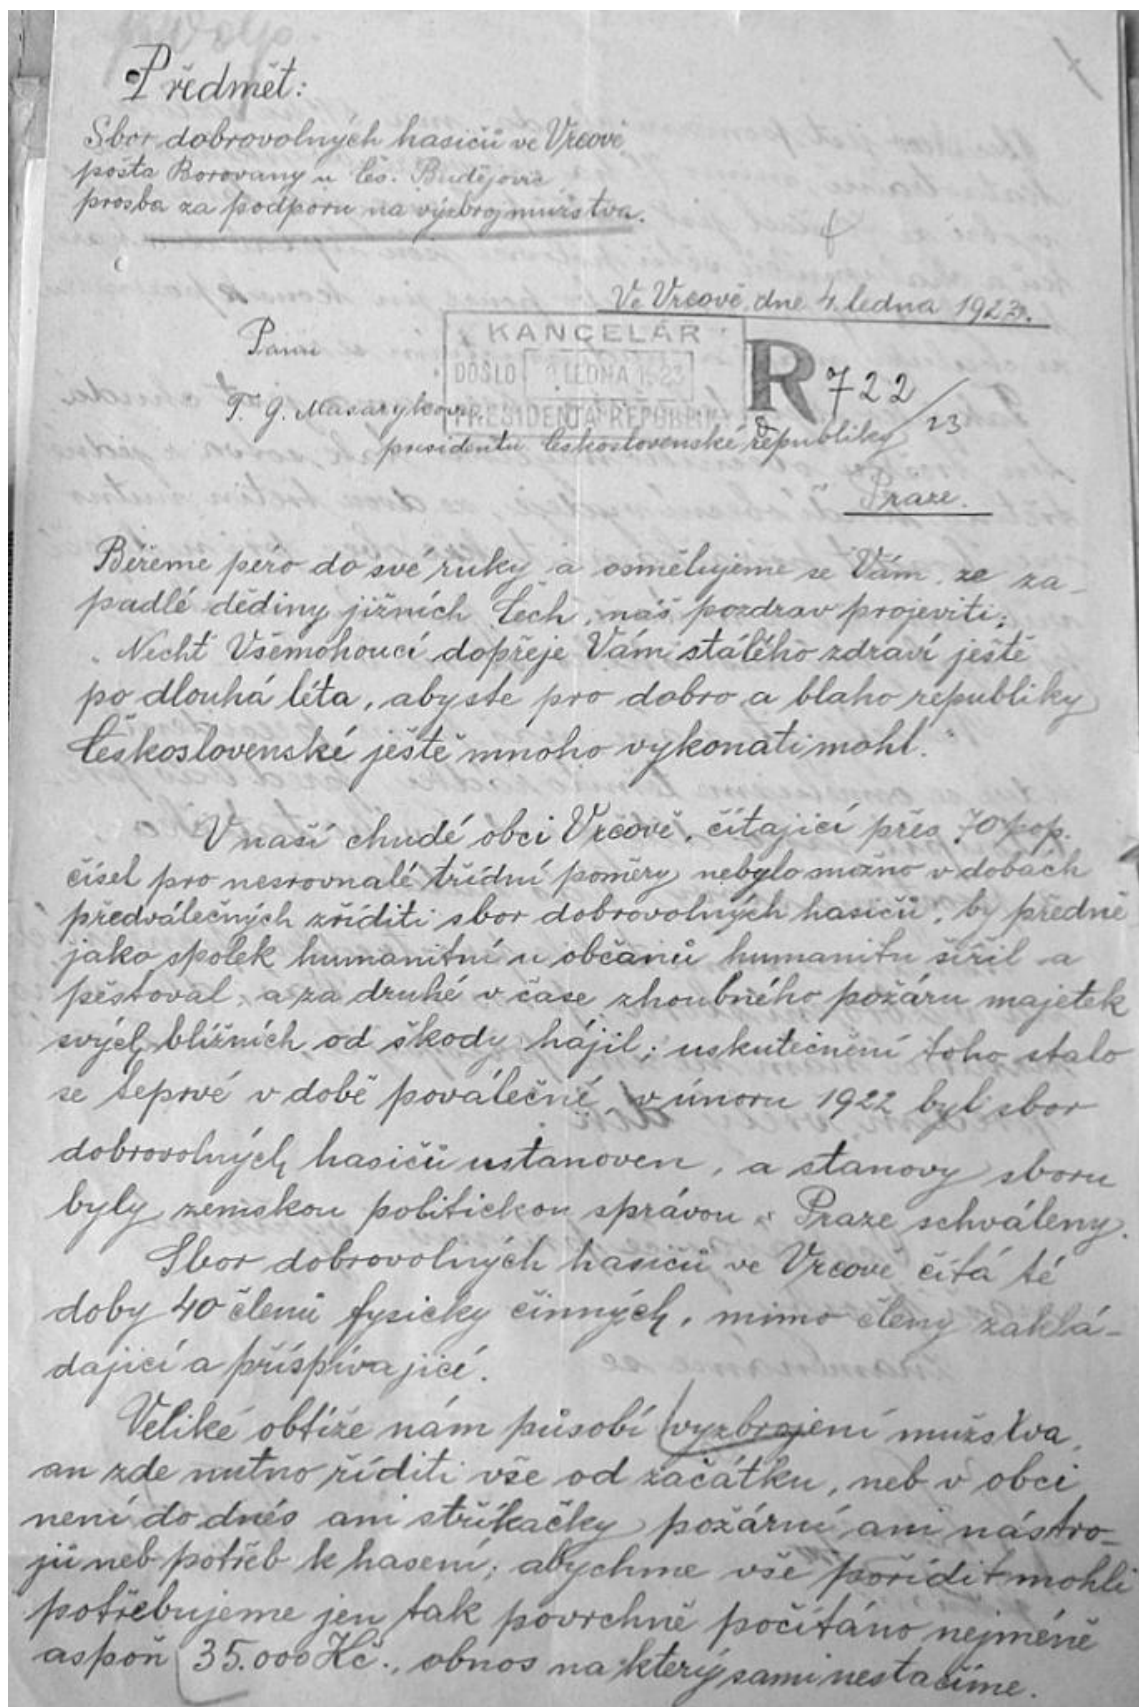 Předmět:
Sbor dobrovolných hasičů ve Vrcově
pošta Borovany u Čes. Budějovic
prosba za podporu na výzbroj mužstva.
Ve Vrcově, dne 4. ledna 1923.
KANCELÁŘ
Panu
DOŠLO LEDNA 1923
R 722/23
T. G. Masarykovi,
PRESIDENTA REPUBLIKY
presidentu Československé republiky
Praze.
Béřeme péro do své ruky a osmělujeme se Vám, ze za-
padlé dědiny jižních Čech, náš pozdrav projeviti;
"Nechť Všemohoucí dopřeje Vám stálého zdraví ještě
po dlouhá léta, abyste pro dobro a blaho republiky
Československé ještě mnoho vykonati mohl."
V naší chudé obci Vrcově, čítající přes 70 pop.
čísel pro nesrovnalé třídní poměry nebylo možno v dobách
předválečných zříditi sbor dobrovolných hasičů, by předně
jako spolek humanitní u občanů humanitu šířil a
pěstoval, a za druhé v čase zhoubného požáru majetek
svých bližních od škody hájil; uskutečnění toho stalo
se teprvé v době poválečné v únoru 1922 byl sbor
dobrovolných hasičů ustanoven, a stanovy sboru
byly zemskou politickou správou v Praze schváleny.
Sbor dobrovolných hasičů ve Vrcově čítá té
doby 40 členů fysicky činných, mimo členy zaklá-
dající a přispívající.
Veliké obtíže nám působí vyzbrojení mužstva,
an zde nutno říditi vše od začátku, neb v obci
není do dnés ani stříkačky požární ani nástro-
jů neb potřeb k hasení; abychme vše pořídit mohli
potřebujeme jen tak povrchně počítáno nejméně
aspoň 35.000 Kč., obnos na který sami nestačíme.